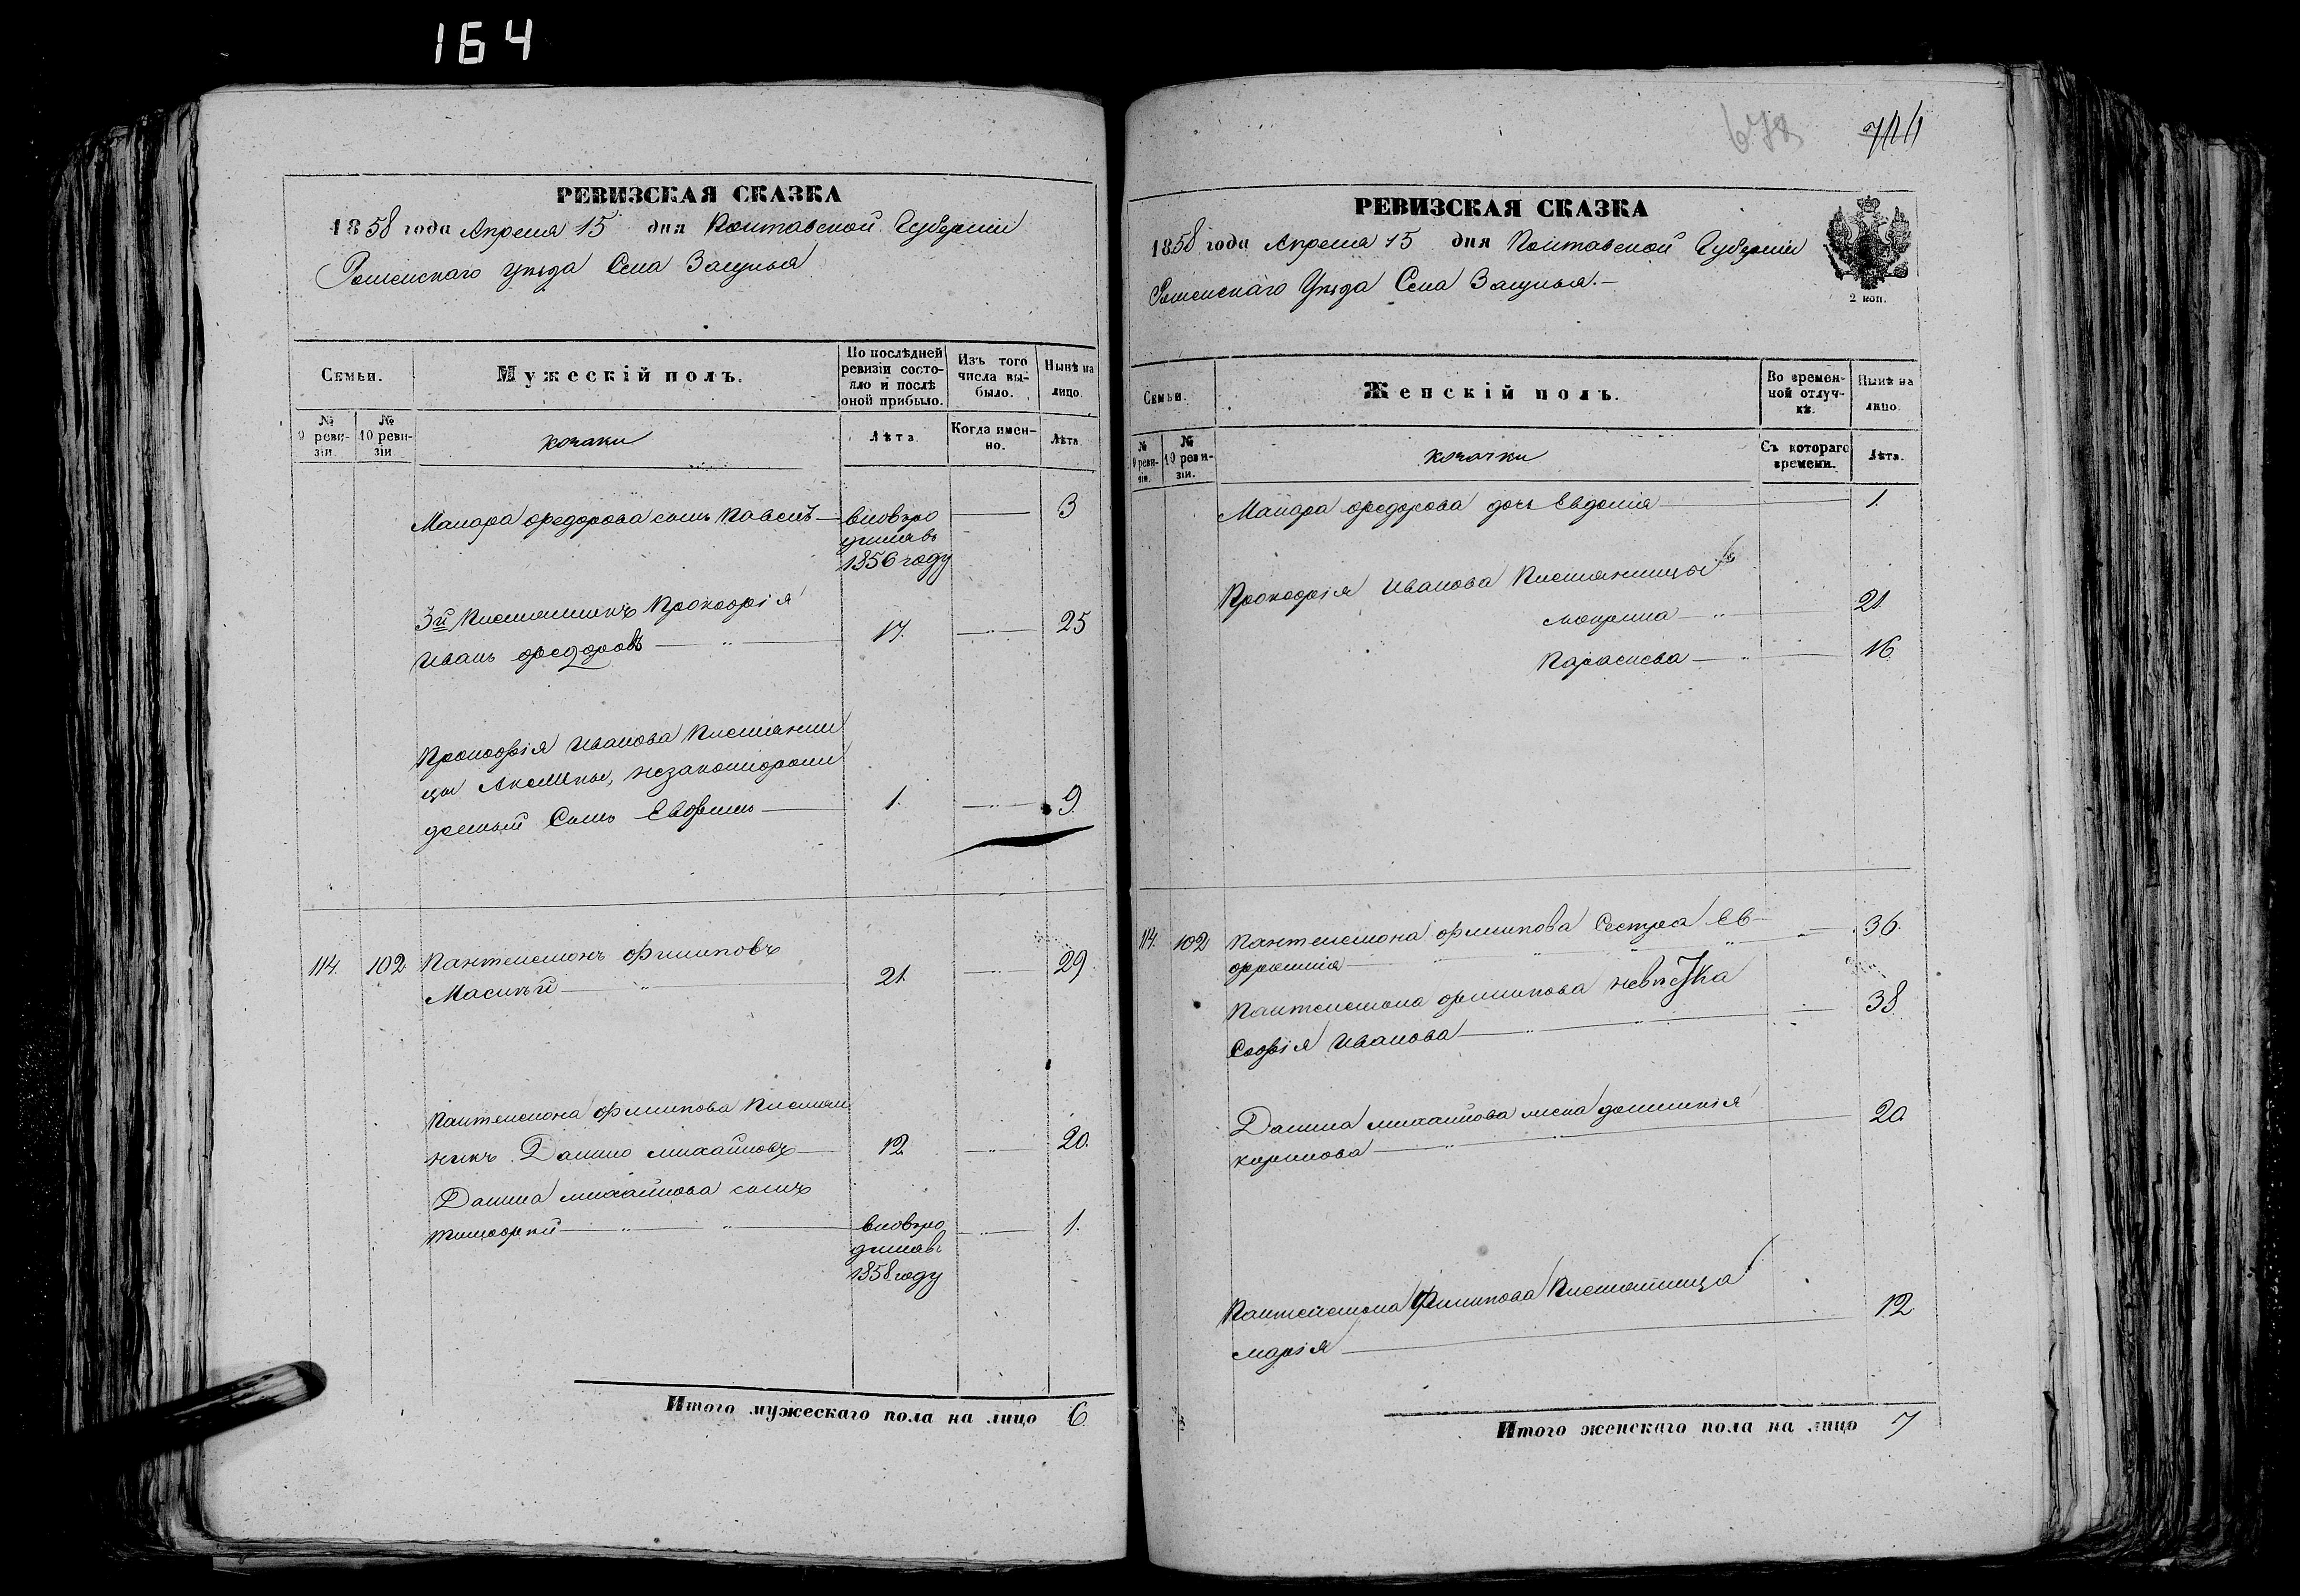 164
РЕВИЗСКАЯ СКАЗКА
1858 года Апреля 15 дня Полтавской Губерніи
Роменскаго Уѣзда Села Засулья
Семьи.
Мужескій полъ.
По послѣдней ревизіи состояло и послѣ оной прибыло.
Изъ того числа выбыло.
Нынѣ на лицо.
№ 9 ревизіи.
№ 10 ревизіи
козаки
Лѣта
Когда именно.
Лѣта
Макара федорова сынъ Павелъ — вновь ро — 3
дился въ
1856 году
3й Племянникъ Прокофія
Иванъ федоровъ — 17. — 25
Прокофія Иванова Племянни
цы Акилины, незаконнорож
денный Сынъ Евфимъ — 1. — 9
114. 102 Пантелемонъ филиповъ
Масикъй — 21. — 29
Пантелемона филипова Племян
никъ Данило михайловъ — 12 — 20.
Данила михайлова сынъ
тимофѣй — вновь ро — 1.
дился въ
1858 году
Итого мужескаго пола на лицо 6
678
РЕВИЗСКАЯ СКАЗКА
1858 года Апреля 15 дня Полтавской Губерніи
Роменскаго Уѣзда Села Засулья. —
2 коп.
Семьи.
Женскій полъ.
Во временной отлучкѣ.
Нынѣ на лицо.
№ 9 ревизіи.
№ 10 ревизіи.
козачки
Съ котораго времени.
Лѣта.
Макара федорова дочь Евдокія — 1.
Прокофія Иванова Племянницы
мокрина — 21
Параскева — 16.
114. 102 Пантелемона филипова Сестра Ев-
фросинія — 36.
Пантелемона филипова невѣстка
Софія Иванова — 38
Данила михайлова жена домникія
карпова — 20
Пантелемона Филипова Племянница
марія — 12
Итого женскаго пола на лицо 7